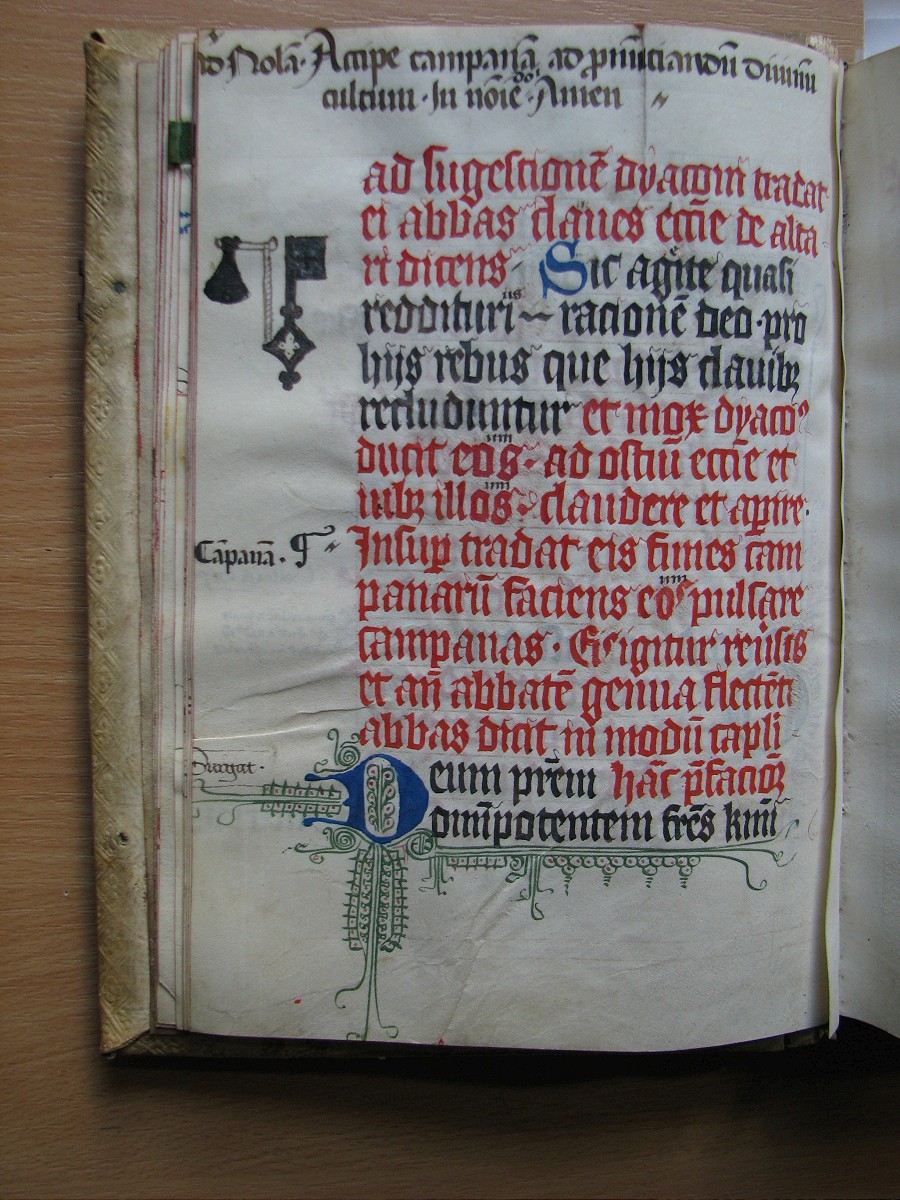 ad Nolā. Accipe campanā ad ꝓnūciandū diuinū
cultum. In nōīe dō. Amen
ad sugestionē dyaconi tradat
ei abbas claues eccīe de alta
ri dicens. Sic agite quasi
reddituri racionē deo. pro
hijs rebus que hijs clauibꝫ
recluduntur et mox dyaco⁹
ducit eos. ad ostiū eccīe et
iubꝫ illos. claudere et aꝑire.
Cāpanā.
Insuꝑ tradat eis funes cam
panarū faciens eos pulsare
campanas. igitur reūsis
et an̄ abbatē genua flectēt
abbas dicit in modū capl̄i
Purgat.
Deum pr̄em hāc p̄facioꝫ
omīpotentem fr̄es kmī